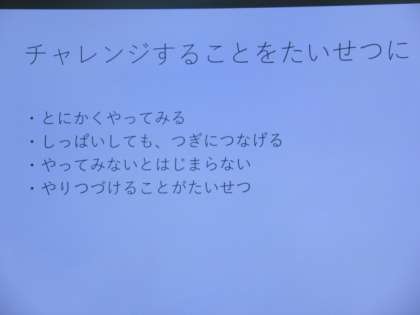 チャレンジすることをたいせつに
・とにかくやってみる
・しっぱいしても、つぎにつなげる
・やってみないとはじまらない
・やりつづけることがたいせつ